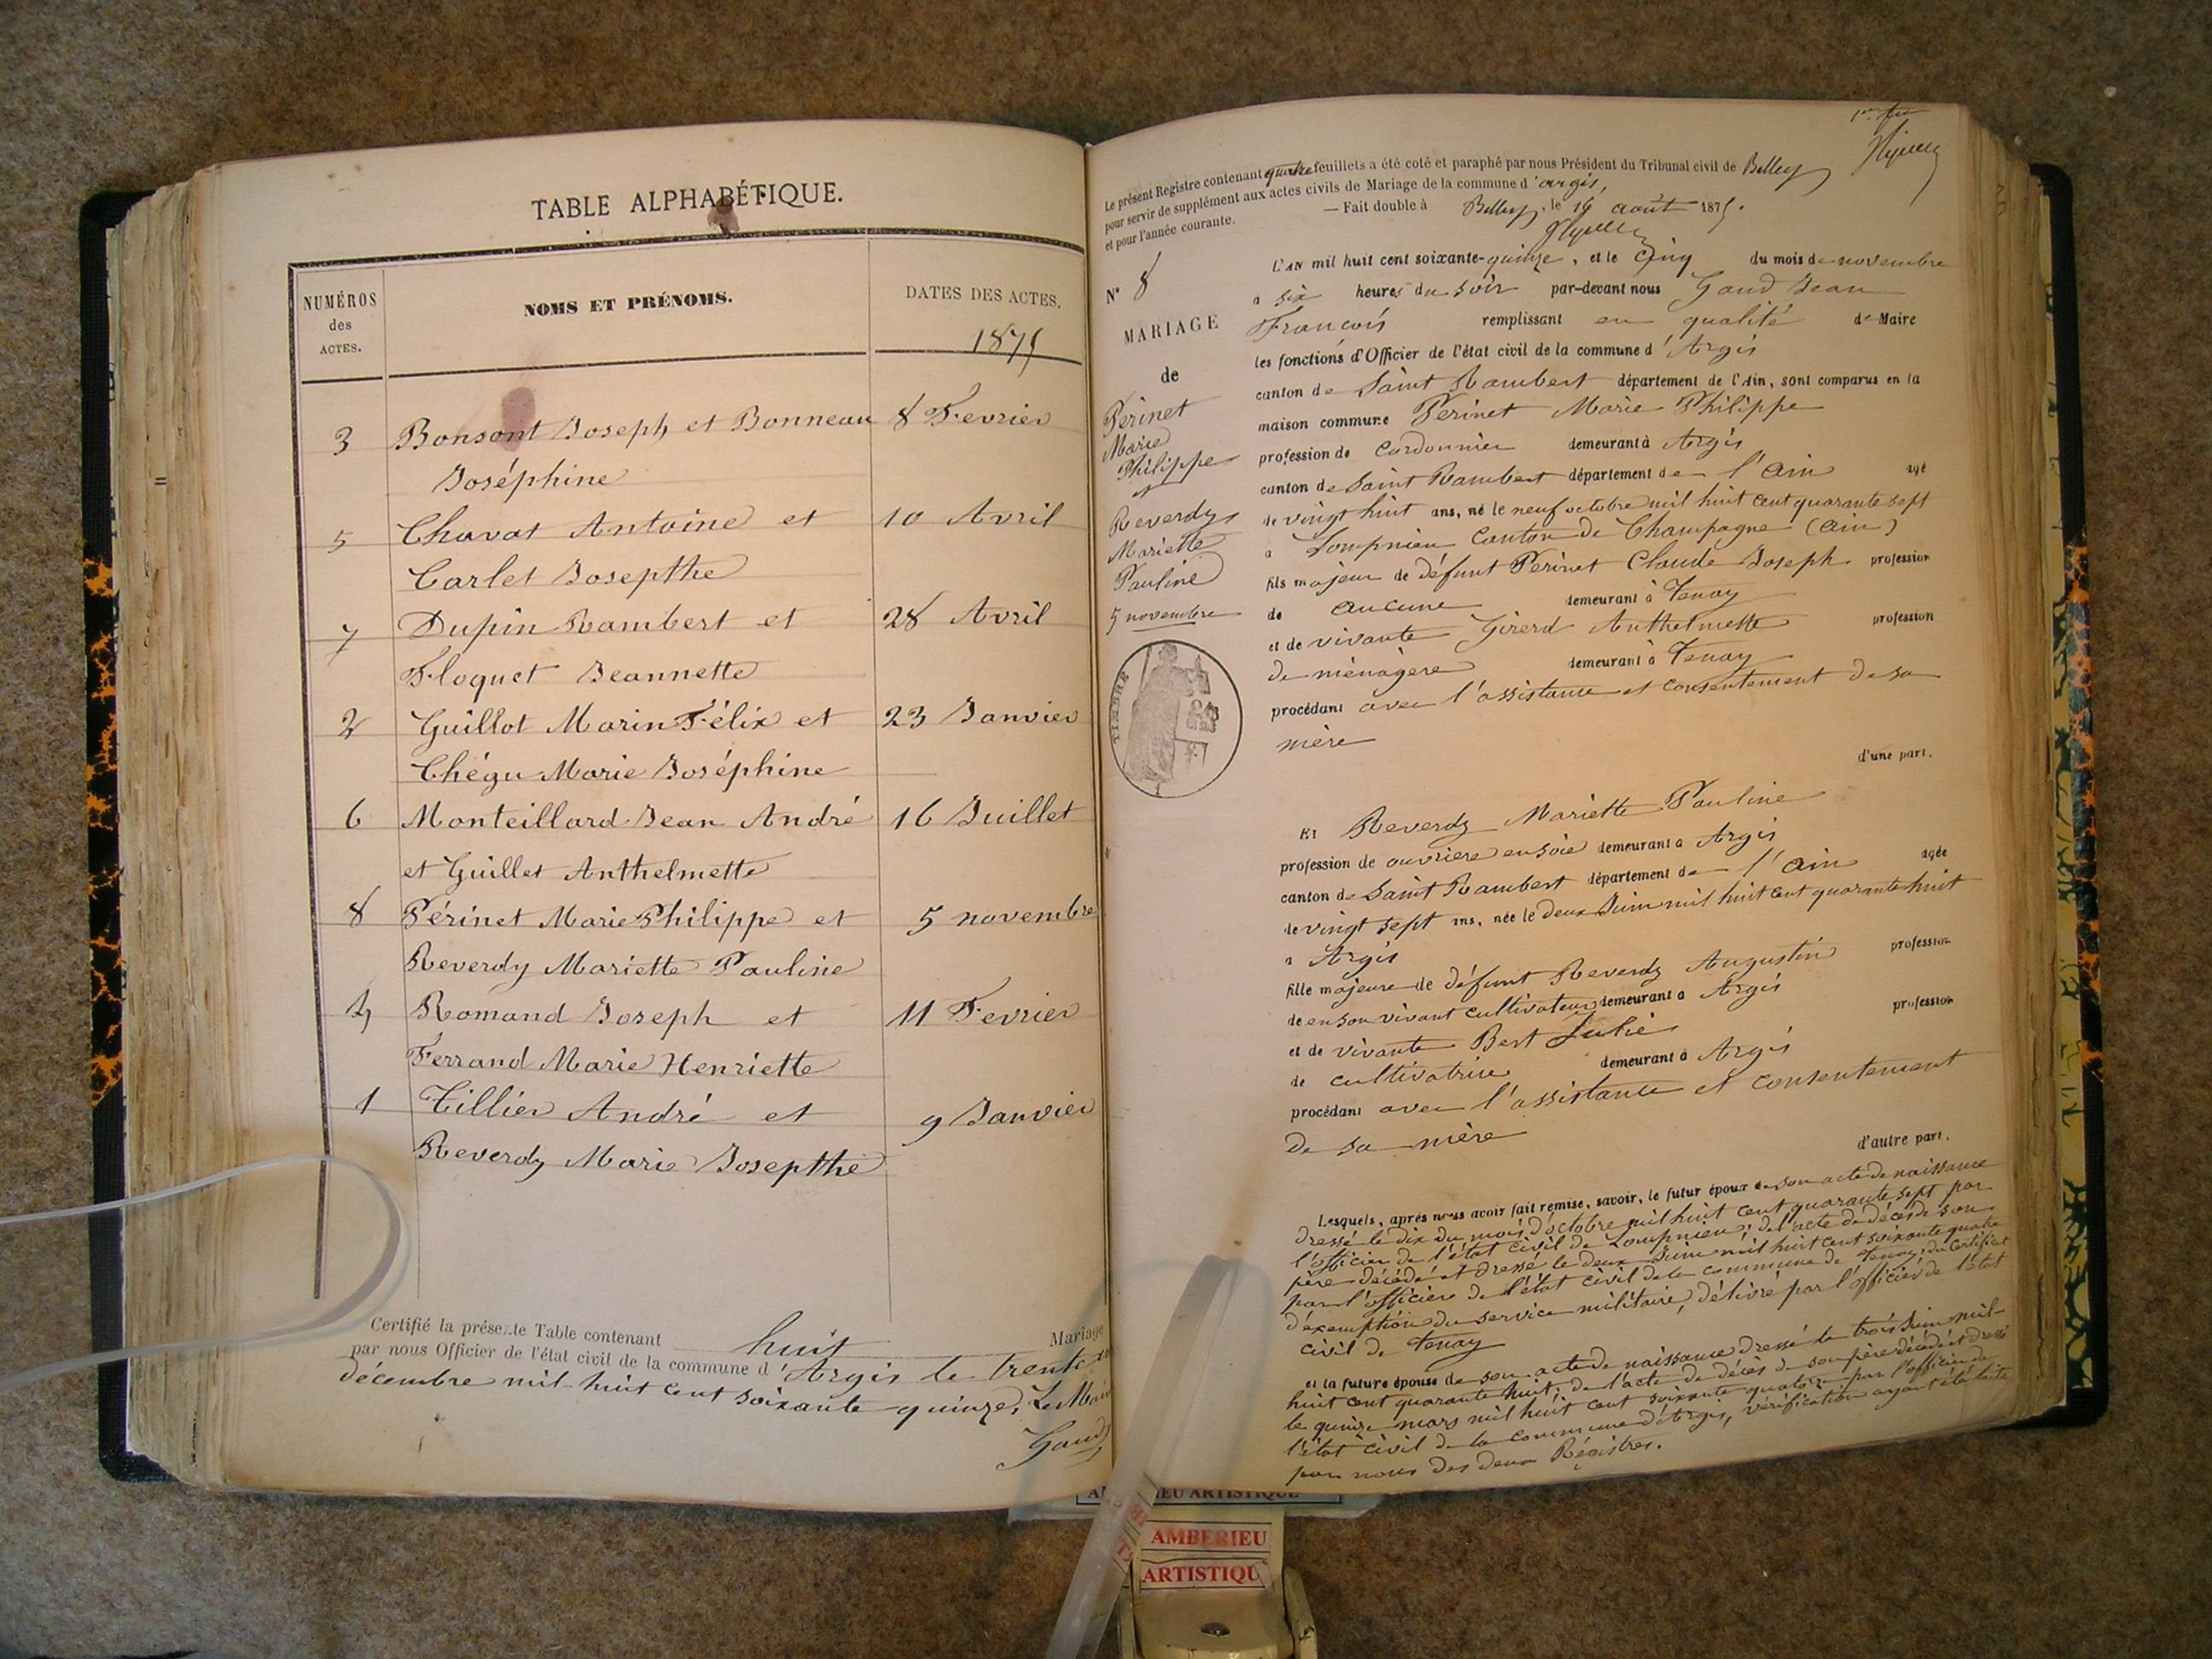 TABLE ALPHABÉTIQUE.
NUMÉROS des ACTES.
NOMS ET PRÉNOMS.
DATES DES ACTES.
1875
3 Bonsont Joseph et Bonneau 8 Fevrier
Joséphine
5 Chavat Antoine et 10 Avril
Carlet Josepthe
7 Dupin Rambert et 28 Avril
Floquet Jeannette
2 Guillot Marin Félix et 23 Janvier
Chégu Marie Joséphine
6 Monteillard Jean André 16 Juillet
et Guillet Anthelmette
8 Périnet Marie Philippe et 5 novembre
Reverdy Mariette Pauline
4 Romand Joseph et 11 Fevrier
Ferrand Marie Henriette
1 Tillier André et 9 Janvier
Reverdy Marie Josepthe
Certifié la présente Table contenant huit Mariage
par nous Officier de l'état civil de la commune d'Argis le trente
décembre mil huit cent soixante quinze, Le Mai
Gaud
Le présent Registre contenant quatre feuillets a été coté et paraphé par nous Président du Tribunal civil de Belley
pour servir de supplément aux actes civils de Mariage de la commune d'argis,
et pour l'année courante. — Fait double à Belley, le 14 août 1875.
N° 8
MARIAGE
de
Périnet
Marie
Philippe
et
Reverdy
Mariette
Pauline
5 novembre
TIMBRE
L'AN mil huit cent soixante-quinze, et le cinq du mois de novembre
à six heures du soir par-devant nous Gaud Jean
François remplissant en qualité de Maire
les fonctions d'Officier de l'état civil de la commune d'Argis
canton de Saint Rambert département de l'Ain, sont comparus en la
maison commune Périnet Marie Philippe
profession de Cordonnier demeurant à Argis
canton de Saint Rambert département de l'Ain agé
de vingt huit ans, né le neuf octobre mil huit cent quarante sept
à Lompnieu Canton de Champagne (Ain)
fils majeur de défunt Périnet Claude Joseph profession
de aucune demeurant à Tenay
et de vivante Girerd Anthelmette profession
de ménagère demeurant à Tenay
procédant avec l'assistance et consentement de sa
mère
d'une part.
Et Reverdy Mariette Pauline
profession de ouvriere en soie demeurant à Argis
canton de Saint Rambert département de l'Ain agée
de vingt sept ans, née le deux Juin mil huit cent quarante huit
à Argis
fille majeure de défunt Reverdy Augustin profession
de en son vivant cultivateur demeurant à Argis
et de vivante Bert Julie profession
de cultivatrice demeurant à Argis
procédant avec l'assistance et consentement
de sa mère
d'autre part.
Lesquels, après nous avoir fait remise, savoir, le futur époux de son acte de naissance
dressé le dix du mois d'octobre mil huit cent quarante sept par
l'officier de l'état civil de Lompnieu; de l'acte de décès de son
père décédé et dressé le deux Juin mil huit cent soixante quatre
par l'officier de l'état civil de la commune de Tenay; du certificat
d'exemption du service militaire, délivré par l'officier de l'état
civil de Tenay
et la future épouse de son acte de naissance dressé le trois Juin mil
huit cent quarante huit; de l'acte de décès de son père décédé et dressé
le quinze mars mil huit cent soixante quatorze par l'officier de
l'état civil de la commune d'Argis, vérification ayant été faite
par nous des deux Régistres.
AMBERIEU
ARTISTIQU